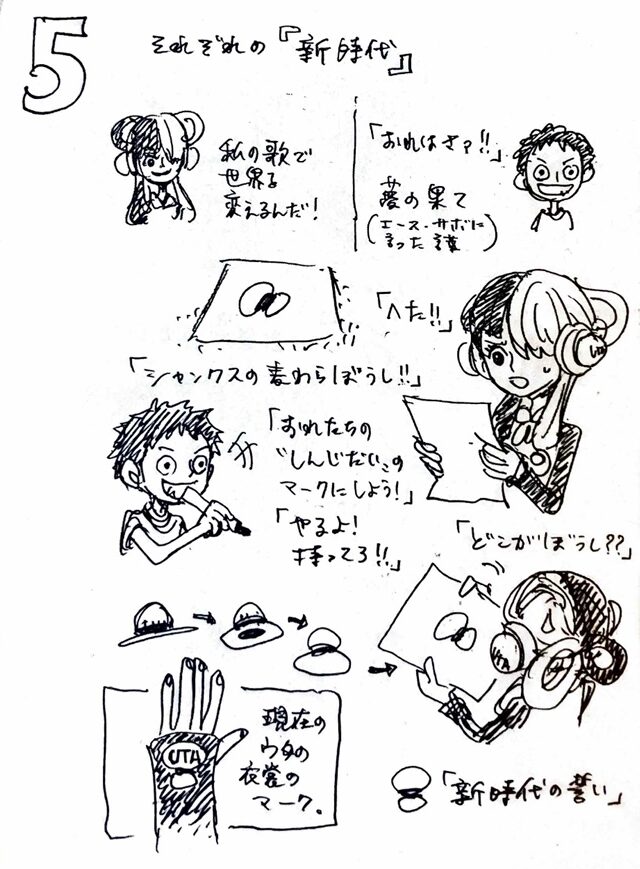 5
それぞれの『新時代』
私の歌で
世界を
変えるんだ!
「おれはさァ!!」
夢の果て
(エース・サボに
言った言葉)
「へた!!」
UTA
「シャンクスの麦わらぼうし!!」
「おれたちの
"しんじだい"の
マークにしよう!」
「やるよ!
持ってろ!!」
「どこがぼうし??」
UTA
現在の
ウタの
衣裳の
マーク。
UTA
「新時代の誓い」